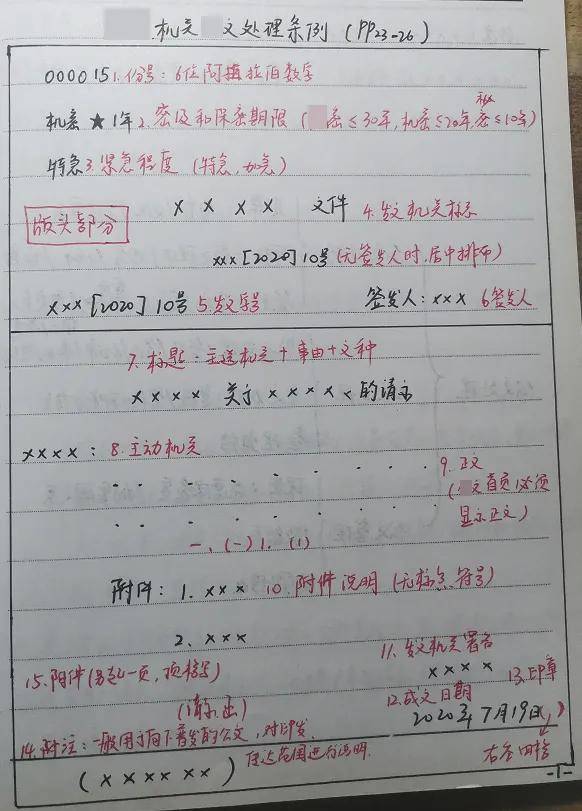 机关 文处理条例 (PP23-26)
000015 1.份号: 6位阿拉伯数字
机密★1年 2.密级和保密期限 ( 密≤30年, 机密≤20年, 秘密≤10年)
特急 3.紧急程度 (特急, 加急)
×××× 文件 4.发文机关标志
版头部分
xxx[2020]10号 (无签发人时, 居中排布)
xxx[2020]10号 5.发文字号 签发人: xxx 6签发人
7.标题: 主送机关+事由+文种
×××× 关于×××××的请示
xxxx: 8.主动机关
9.正文
( 文首页必须
显示正文)
一、(一) 1. (1)
附件: 1. xxx 10 附件说明 (无标点符号)
2. xxx
11.发文机关署名
××××
15.附件(另起一页, 顶格写)
13.印章
12.成文日期
2020年7月19日
14.附注: 一般用于向下普发的公文, 对印发
传达范围进行说明.
右空四格
(×××××)
-1-